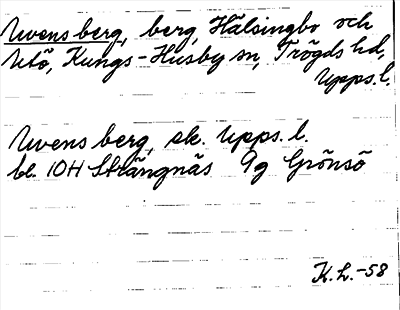 Uvens berg, berg, Hälsingbo och
Utö, Kungs-Husby sn, Trögds hd,
Upps.l.
Uvens berg, sk. Upps. l.
bl. 10H Strängnäs 9g Grönsö
K.L.-58